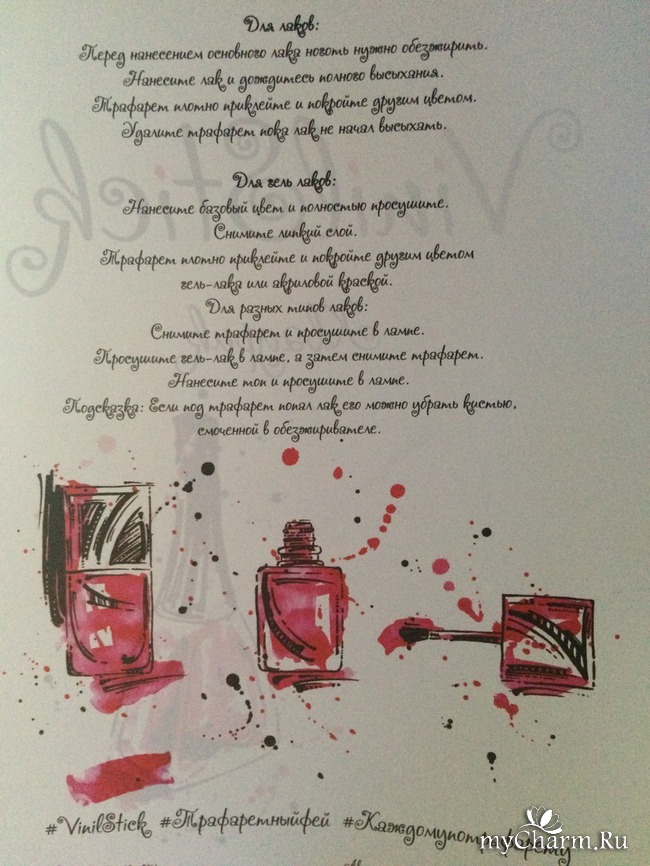 Для лаков:
Перед нанесением основного лака ноготь нужно обезжирить.
Нанесите лак и дождитесь полного высыхания.
Трафарет плотно приклейте и покройте другим цветом.
Удалите трафарет пока лак не начал высыхать.
Для гель лаков:
Нанесите базовый цвет и полностью просушите.
Снимите липкий слой.
Трафарет плотно приклейте и покройте другим цветом
гель-лака или акриловой краской.
Для разных типов лаков:
Снимите трафарет и просушите в лампе.
Просушите гель-лак в лампе, а затем снимите трафарет.
Нанесите топ и просушите в лампе.
Подсказка: Если под трафарет попал лак его можно убрать кистью,
смоченной в обезжиривателе.
VinilStick
#VinilStick #Трафаретныйфей #Каждомупотрафарету
myCharm.Ru